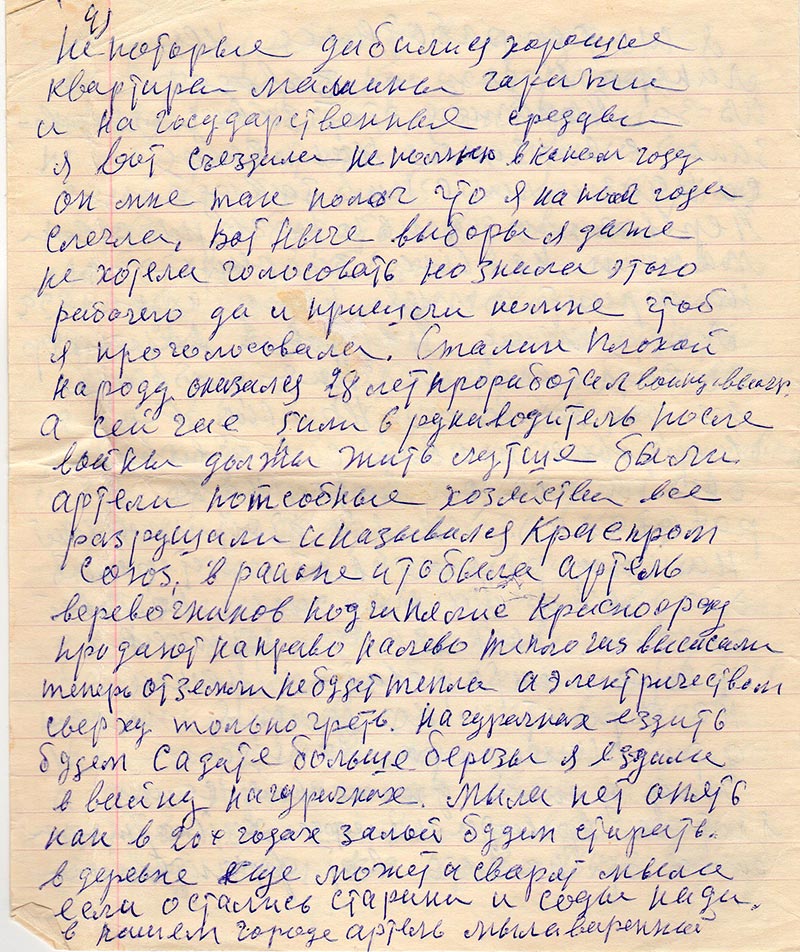 9)
Некоторые дабились хорошие
квартиры машины гаражи
и на государственные срездвы
я вот съездила не помню в каком году
он мне так помог что я на год
слегла, вот нынче выборы я даже
не хотела голосовать но знала этого
рабочего да и пришли комне чтоб
я проголосовала. Сталин плохой
народу оказался 28 лет проработал войну
А сейчас были б руководитель после
войны должны жить лутше были
артели потсобные хозяйства все
разрушали и назывался Краспром
Союз, в районе и то была артель
веревочников подчинялис Красногороду
продают направо налево тепло газ высасали
теперь от земли небудет тепла а электричеством
сверху только греть. На чурачках ездить
будем садате больше березы я ездила
в вайну начурачках. Мыла нет опять
как в 20х годах залой будем стирать.
в деревне еще может и сварят мыла
если остались старики и соды нади.
в нашем городе артель мылаваренной